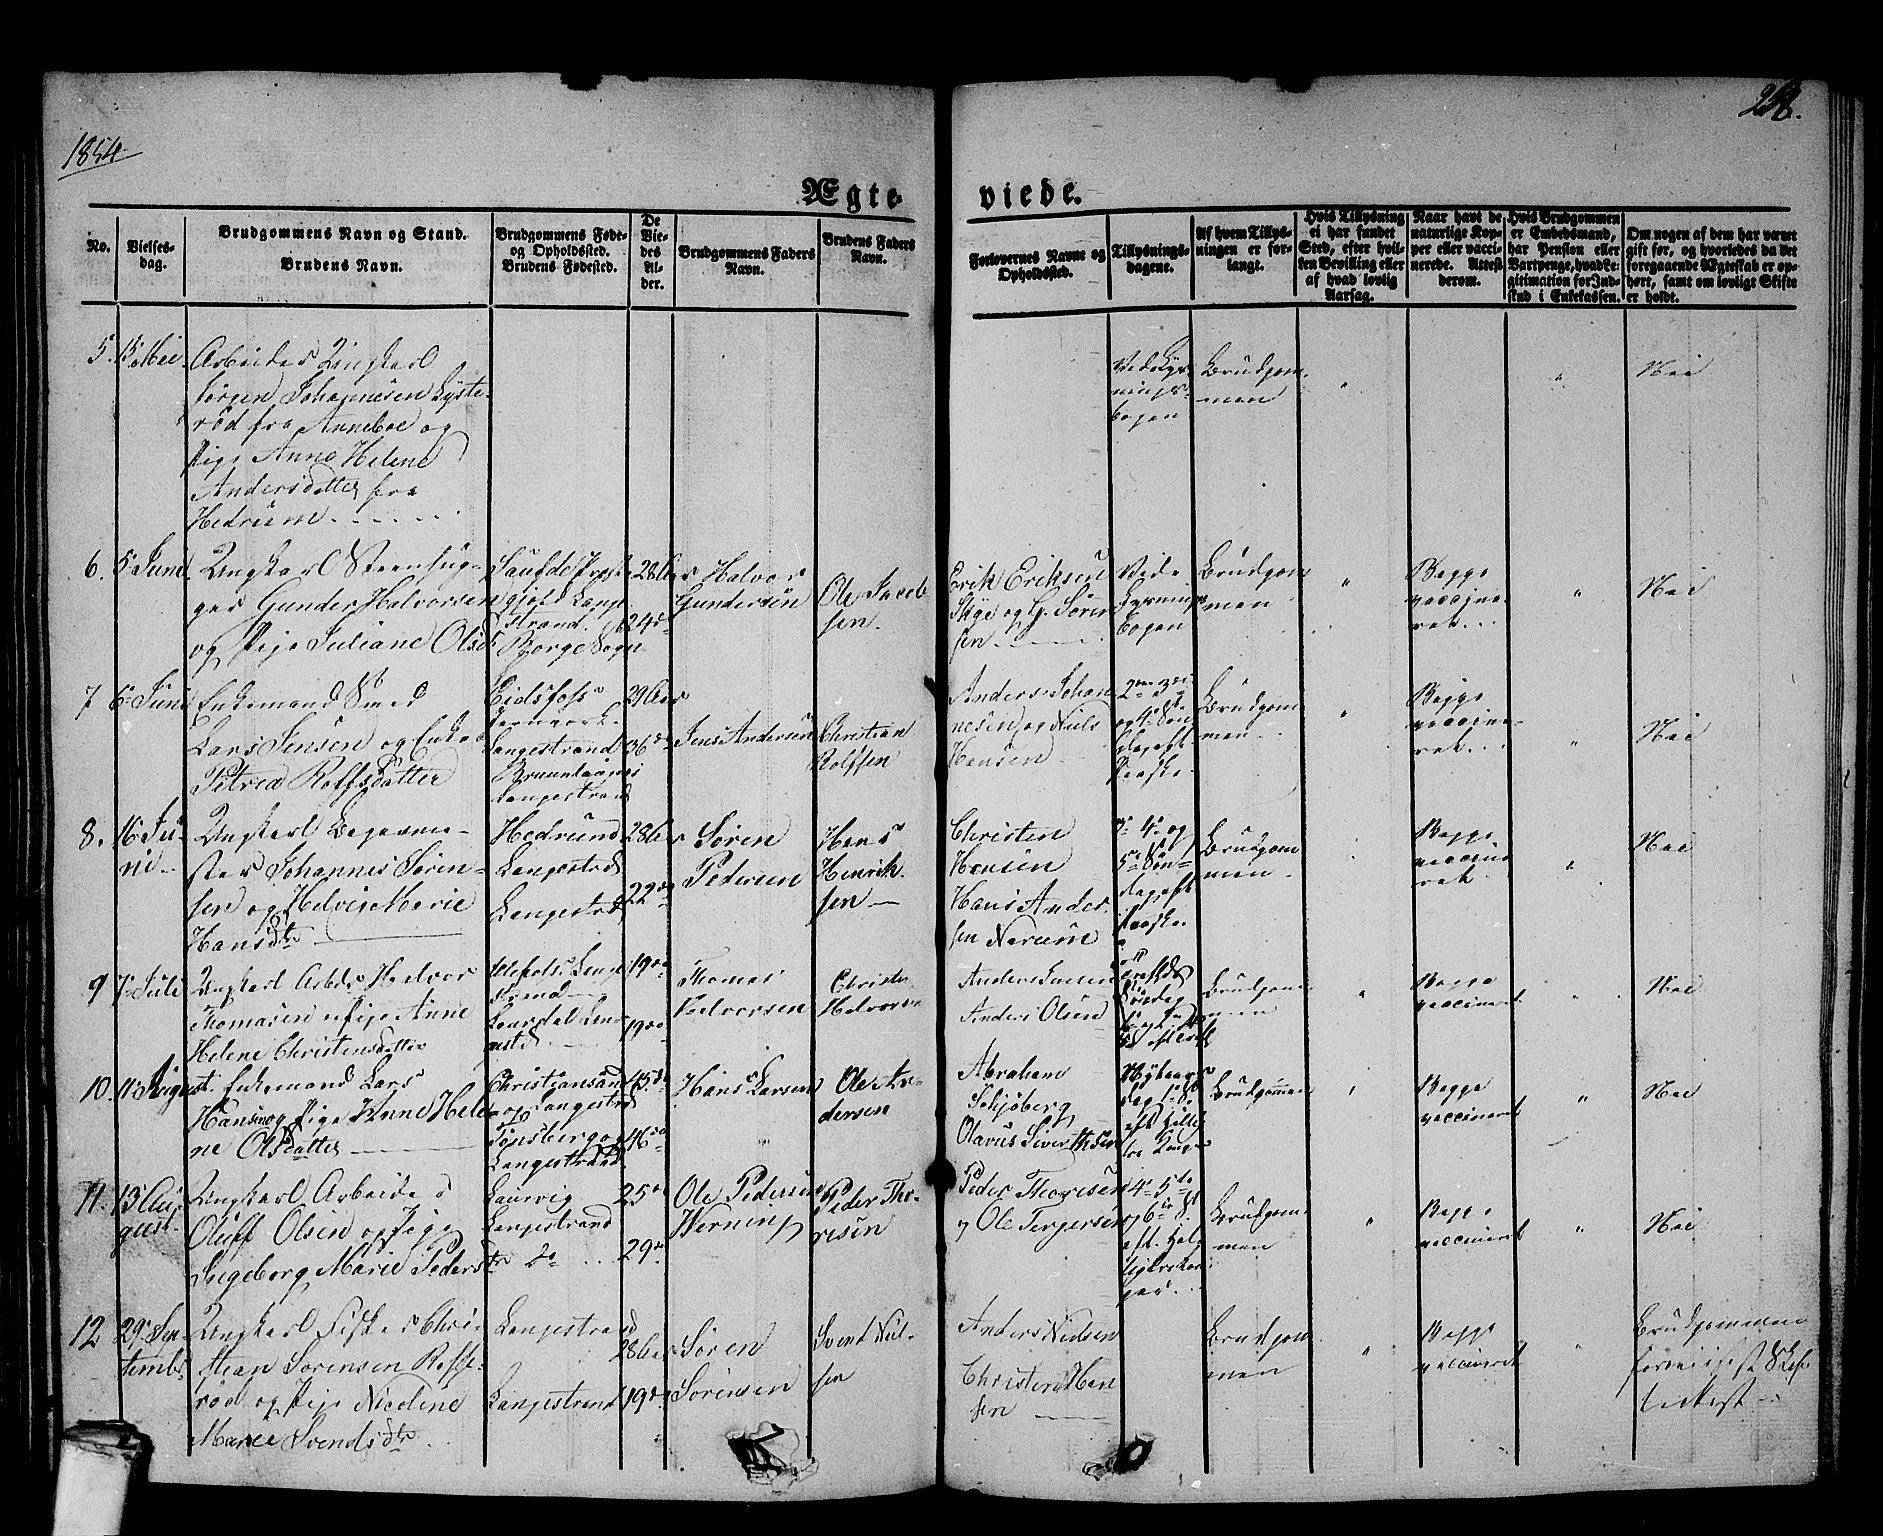 1854
258.
Ægte viede.
No.
Vielses-
dag.
Brudgommens Navn og Stand.
Brudens Navn.
Brudgommens Føde-
og Opholdssted.
Brudens Fødested.
De
Vie-
des
Al-
der.
Brudgommens Faders
Navn.
Brudens Faders
Navn.
Forlovernes Navne og
Opholdssted.
Tillysnings-
dagene.
Af hvem Tillys-
ningen er for-
langt.
Hvis Tillysning
ei har fundet
Sted, efter hvil-
ken Bevilling eller
af hvad lovlig
Aarsag.
Naar havt de
naturlige Kop-
per eller vacci-
nerede. Attest
derom.
Hvis Brudgommen
er Embedsmand,
har Pension eller
Vartpenge, hvad Le-
gitimation for Ind-
skud i Enkekassen.
Om nogen af dem har været
gift før, og hvorledes da det
foregaaende Ægteskab er op-
hørt, samt om lovligt Skifte
er holdt.
5. 15 Mai
Arbeider Ungkarl
Jørgen Johannesen Lyste-
rød fra Anneboe og
Pige Anne Helene
Andersdatter fra
Hedrum
Ved Lys-
nings-
bogen
Brudgom-
men
"
"
Nei
6. 5 Juni
Ungkarl Steenhug-
ger Gunder Halvorsen
og Pige Juliane Olsd
gjeld Lange
strand.
Borge Sogn
28 Aar
24 do
Halvor
Gundersen
Ole Jacob-
sen.
Erik Eriksen
og G. Søren
sen
Vide
Lysnings
bogen
Brudgom
men
"
Begge
vaccine-
ret
"
Nei
7 6 Juni
Enkemand Smed
Lars Jensen og Enke
Petrea Rolfsdatter
Eidsfoss
Jernverk
Langestrand
Brunlaugnes
Langestrand
29 Aar
36 do
Jens Andersen
Christian
Rolfsen
Anders Johan
nesen og Niels
Hansen
2den 3die
og 4de Søn
dag eft
Paaske
Brudgom
men
"
Begge
vaccine-
ret
"
Nei
8. 16 Ju-
ni
Ungkarl Bagerme-
ster Johannes Søren-
sen og Helvis Marie
Hansdtr
Hedrum
Langestrd
Langestrd
28 Aar
22 do
Søren
Pedersen
Hans
Henrik-
sen
Christen
Hansen
Hans Ander-
sen Nerum
3de 4de og
5de Søn-
dag eft
Paaske
Brudgom
men
Begge
vaccine
ret
"
Nei
9 7 Juli
Ungkarl Arbdr Halvor
Thomasen & Pige Anne
Helene Christensdatter
strand
Laurdal Lan-
gestd
19 do
19 do
Thomas
Halvorsen
Christen
Halvorsen
Anders
Anders Olsen
Brudgom
men
"
Begge
vaccineret
"
Nei
10. 11 August.
Enkemand Lars
Hansen og Pige Anne Hele-
ne Olsdatter
Christiansand
og Langestrd
Tønsberg og
Langestrand
45 do
46 do
Hans Larsen
Ole An-
dersen
Abraham
Schjöberg
Olavus Siverthsen
Nytaars
dag
Brudgommen
"
Begge
vaccineret
"
Nei
11. 13 Au-
gust.
Ungkarl Arbeider
Oluff Olsen og Pige
Ingeborg Marie Peders
dtr
Laurvig
Langestrand
do
25 do
29 do
Ole Pedersen
Herning
Peder Tho-
resen
Peder Thoresen
og Ole Torgersen
4de 5te
og 6te S.
eft. Hel-
ligtrekon-
ger
Brudgom-
men
"
Begge
vaccineret
"
Nei
12 29 Sep-
tembr
Ungkarl Fisker Chri-
stian Sørensen Roppe-
rød og Pige Nicoline
Maree Svendsdtr
Langestrand
Langestrand
28 Aar
19 do
Søren
Sørensen
Svend Niel-
sen
Anders Nielsen
Christen Han
sen
Brudgom-
men
"
Begge
vaccineret
"
Brudgommen